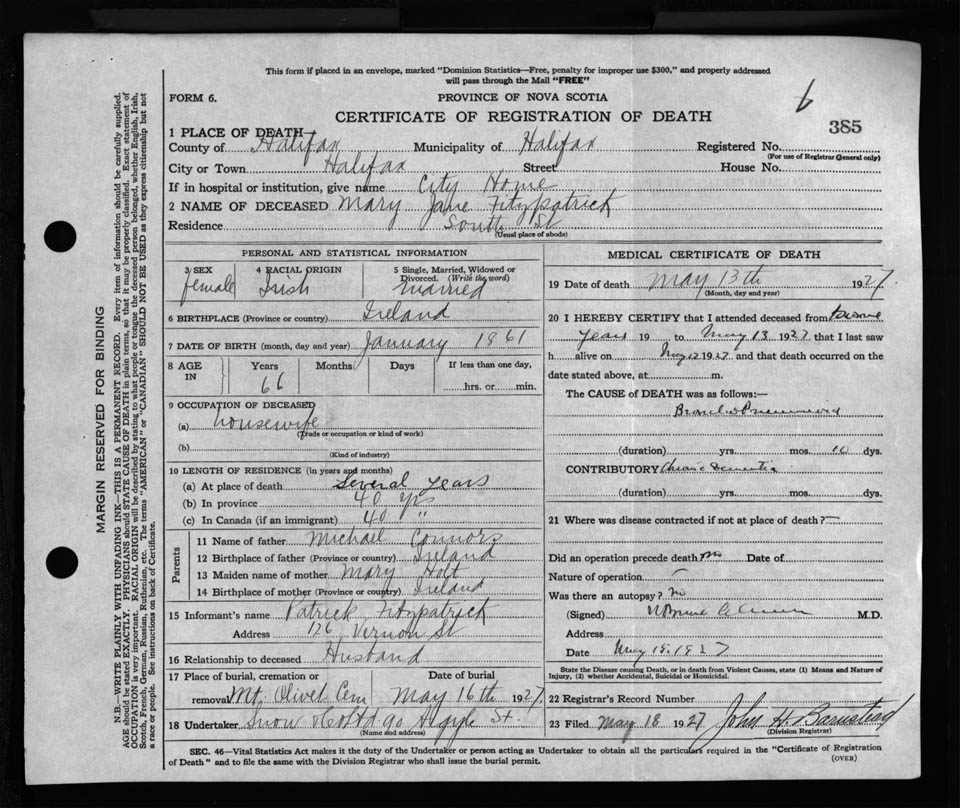 This form if placed in an envelope, marked "Dominion Statistics—Free, penalty for improper use $300," and properly addressed
will pass through the Mail "FREE"
FORM 6.
PROVINCE OF NOVA SCOTIA
CERTIFICATE OF REGISTRATION OF DEATH
385
1 PLACE OF DEATH—
County of Halifax Municipality of Halifax Registered No.
(For use of Registrar General only)
City or Town Halifax Street House No.
If in hospital or institution, give name City Home
2 NAME OF DECEASED Mary Jane Fitzpatrick
Residence South St
(Usual place of abode)
PERSONAL AND STATISTICAL INFORMATION
3 SEX female
4 RACIAL ORIGIN Irish
5 Single, Married, Widowed or
Divorced. (Write the word)
married
6 BIRTHPLACE (Province or country) Ireland
7 DATE OF BIRTH (month, day and year) January 1861
8 AGE IN Years Months Days If less than one day,
66 hrs. or min.
9 OCCUPATION OF DECEASED
(a) housewife
(Trade or occupation or kind of work)
(b)
(Kind of industry)
10 LENGTH OF RESIDENCE (in years and months)
(a) At place of death Several years
(b) In province 40 yrs
(c) In Canada (if an immigrant) 40 "
Parents
11 Name of father Michael Connors
12 Birthplace of father (Province or country) Ireland
13 Maiden name of mother Mary Holt
14 Birthplace of mother (Province or country) Ireland
15 Informant's name Patrick Fitzpatrick
Address 126 Vernon St
16 Relationship to deceased Husband
17 Place of burial, cremation or Date of burial
removal Mt. Olivet Cem May 16th 1927
18 Undertaker Snow & Co Ltd 90 Argyle St.
(Name and address)
MEDICAL CERTIFICATE OF DEATH
19 Date of death May 13th 1927
(Month, day and year)
20 I HEREBY CERTIFY that I attended deceased from
years 19 to May 13 1927 that I last saw
h alive on May 12 1927 and that death occurred on the
date stated above, at m.
The CAUSE OF DEATH was as follows:—
Broncho Pneumonia
(duration) yrs. mos. 10 dys.
CONTRIBUTORY Chronic Dementia
(duration) yrs. mos. dys.
21 Where was disease contracted if not at place of death? —
Did an operation precede death no Date of
Nature of operation —
Was there an autopsy? no
(Signed) M.D.
Address
Date May 15. 1927
State the Disease causing Death, or in death from Violent Causes, state (1) Means and Nature of
Injury, (2) whether Accidental, Suicidal or Homicidal.
22 Registrar's Record Number
23 Filed May 18 1927 John H. Barnstead
(Division Registrar)
SEC. 46—Vital Statistics Act makes it the duty of the Undertaker or person acting as Undertaker to obtain all the particulars required in the "Certificate of Registration
of Death" and to file the same with the Division Registrar who shall issue the burial permit.
(OVER)
MARGIN RESERVED FOR BINDING
N.B.—WRITE PLAINLY WITH UNFADING INK—THIS IS A PERMANENT RECORD. Every item of information should be carefully supplied.
AGE should be stated EXACTLY. PHYSICIANS should STATE CAUSE OF DEATH in plain terms, so that it may be properly classified. Exact statement of
OCCUPATION is very important. RACIAL ORIGIN will be described by stating to what people or tongue the deceased person belonged, whether English, Irish,
Scotch, French, German, Russian, Ruthenian, etc. The terms "AMERICAN" or "CANADIAN" SHOULD NOT BE USED as they express citizenship but not
a race or people. See instructions on back of Certificate.